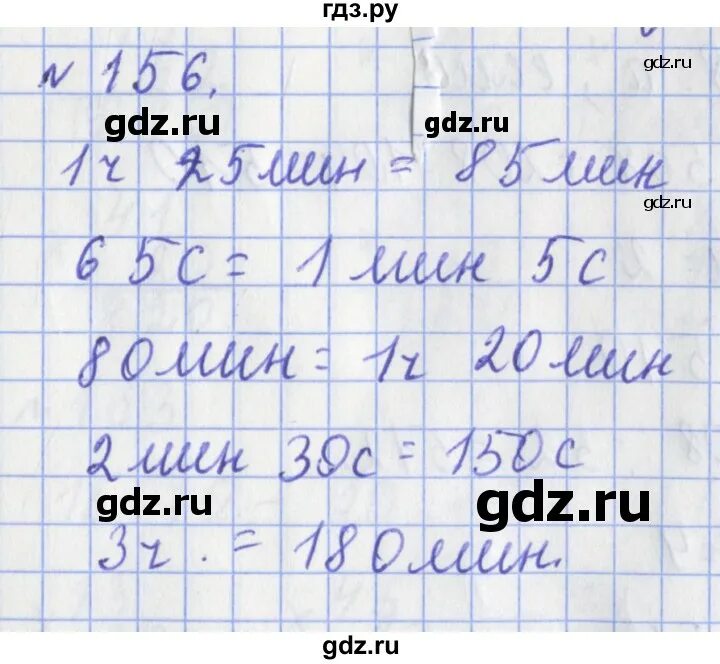 гдз.ру
№ 156.
gdz.ru
gdz.ru
gdz.ru
1ч 25мин = 85мин
gdz.ru
65с = 1мин 5с
80мин = 1ч 20мин
2мин 30с = 150с
gdz.ru
gdz.ru
3ч. = 180мин.
gdz.ru